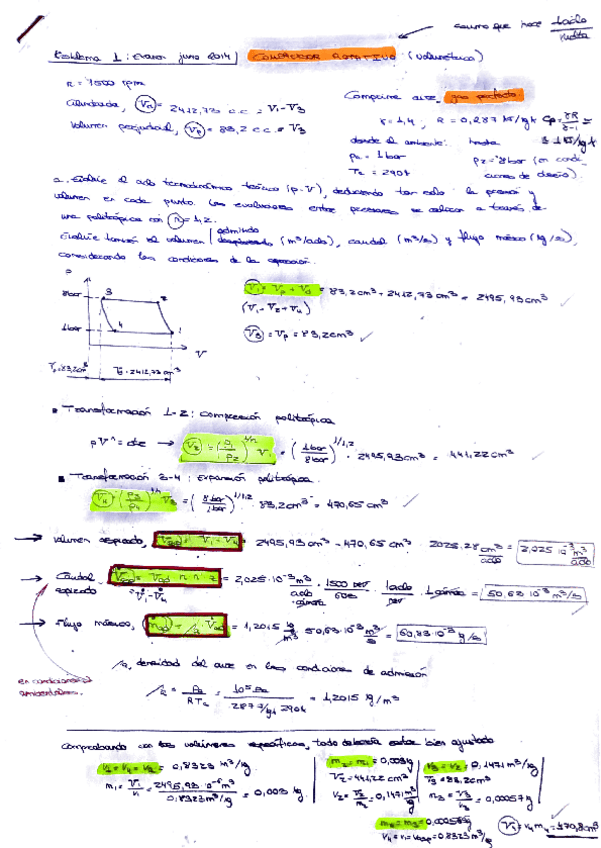 asumo que hace 1 ciclo
Problema 1: Examen junio 2014 | COMPRESOR ROTATIVO (volumétrico)
n = 1500 rpm
Cilindrada, Vd = 2412,73 c.c. = V1-V3
Volumen perjudicial, Vp = 83,2 c.c. = V3
Comprime aire, gas perfecto
γ = 1,4; R = 0,287 kJ/kgK Cp = γR/γ-1
desde el ambiente: hasta
p1 = 1 bar p2 = 8 bar (en condi-
T1 = 290K ciones de diseño).
a. Estudie el ciclo termodinámico teórico (p-V), deduciendo tan solo la presión y
volumen en cada punto. Las evoluciones entre presiones se realizan a través de
una politrópica con n = 1,2.
Estudie también el volumen admitido (m³/ciclo), caudal (m³/s) y flujo másico (kg/s),
considerando las condiciones de la aspiración.
P
8bar 3 2
1bar 4 1
V
Vp = 83,2cm³ Vd = 2412,73 cm³
V1 = Vp + Vd = 83,2cm³ + 2412,73 cm³ = 2495,93 cm³
V3 = Vp = 83,2cm³
Transformación 1-2: Compresión politrópica
pVⁿ = cte → V2 = (p1/p2)^1/n V1 = (1bar/8bar)^1/1,2 · 2495,93 cm³ = 441,22 cm³
Transformación 3-4: Expansión politrópica.
V4 = (p3/p4)^1/n V3 = (8bar/1bar)^1/1,2 83,2cm³ = 470,65 cm³
→ Volumen aspirado, Vad = V1 - V4 = 2495,93 cm³ - 470,65 cm³ = 2025,28 cm³/ciclo = 2,025 · 10⁻³ m³/ciclo
→ Caudal aspirado = 2,025·10⁻³ m³/ciclo · 1500 rev/60s · 1ciclo/rev · = 50,63 10⁻³ m³/s
→ Flujo másico, = 1,2015 kg/m³ 50,63·10⁻³ m³/s = 60,83·10⁻³ kg/s
densidad del aire en las condiciones de admisión
en condiciones
ambientales.
= pa/RTa = 10⁵ Pa/287 J/kgK 290K = 1,2015 kg/m³
Comprobando con los volúmenes específicos, todo debería estar bien ajustado
= 0,8323 m³/kg
m1 = V1/v1 = 2495,93 · 10⁻⁶m³/0,8323 m³/kg = 0,003 kg
m2 = m1 = 0,003kg
V2 = 441,22 cm³
v2 = V2/m2 = 0,1471 m³/kg
v3 = v2 = 0,1471 m³/kg
V3 = 83,2cm³
m3 = V3/v3 = 0,00057 kg
m4 = m3 = 0,00056kg
= 0,8323 m³/kg
V4 = v4 m4 = 470,8cm³